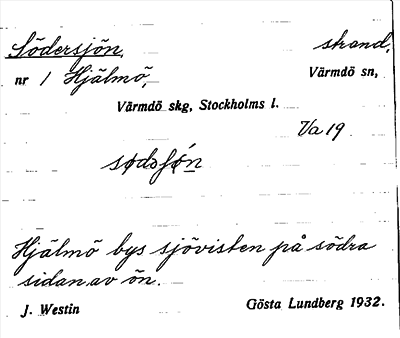 Södersjön, strand,
nr 1 Hjälmö, Värmdö sn,
Värmdö skg, Stockholms l.
Va 19
Hjälmö bys sjövisten på södra
sidan av ön.
J. Westin Gösta Lundberg 1932.